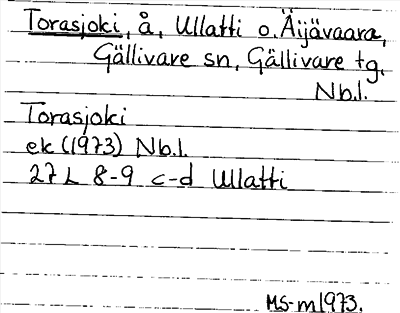 Torasjoki, å, Ullatti o. Äijävaara,
Gällivare sn, Gällivare tg,
Nb.l.
Torasjoki
ek (1973) Nb.l.
27 L 8-9 c-d Ullatti
MS-m1973.